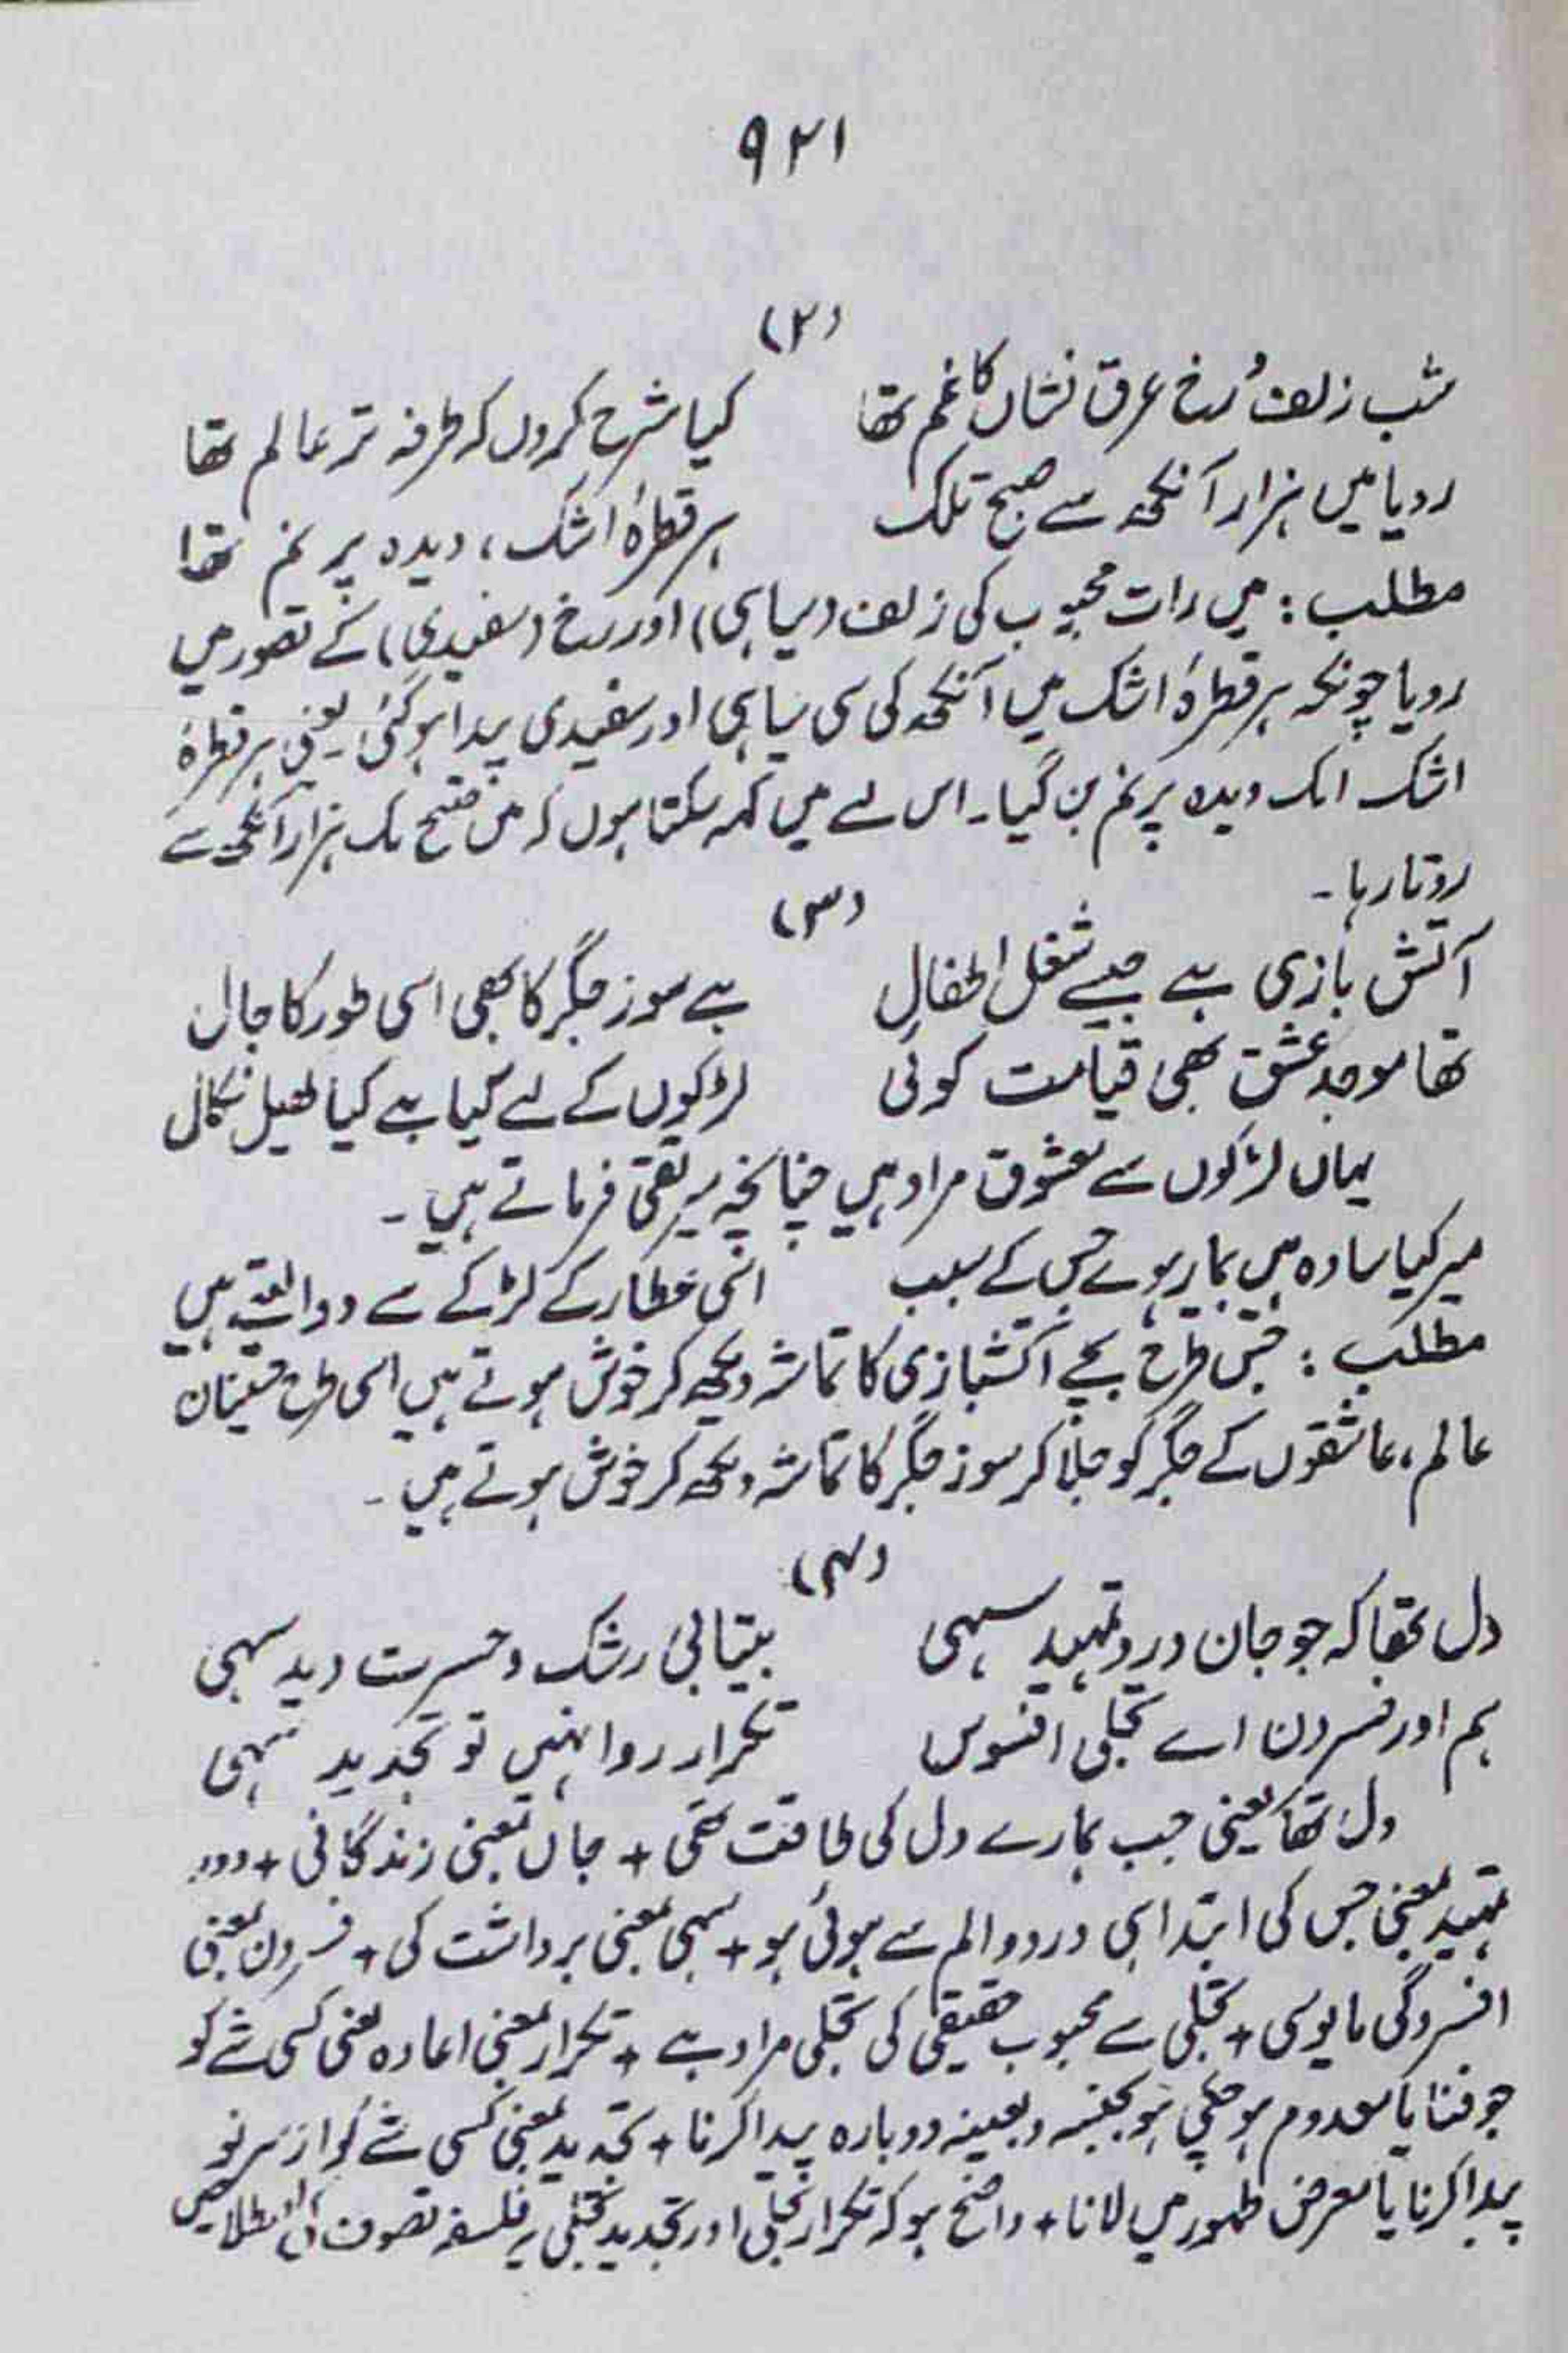 ۹۲۱
(۲)
شب زلف و رخ عرق فشاں کا غم تھا کیا شرح کروں کہ طرفہ تر عالم تھا
رویا میں ہزار آنکھ سے صبح تلک ہر قطرۂ اشک، دیدہ پر نم تھا
مطلب: میں رات محبوب کی زلف (سیاہی) اور رخ (سفیدی) کے تصور میں
رویا چونکہ ہر قطرۂ اشک میں آنکھ کی سی سیاہی اور سفیدی پیدا ہو گئی یعنی ہر قطرۂ
اشک ایک دیدہ پر نم بن گیا۔ اس لے میں کہہ سکتا ہوں کہ میں صبح تک ہزار آنکھ سے
روتا رہا۔
(۳)
آتش بازی ہے جیسے شغل اطفال ہے سوز جگر کا بھی اسی طور کا حال
تھا موجد عشق بھی قیامت کوئی لڑکوں کے لیے گیا ہے کیا کھیل نکال
یہاں لڑکوں سے معشوق مراد ہیں چنانچہ میر تقی فرماتے ہیں۔
میر کیا سادہ ہیں بیمار ہوے جس کے سبب اسی عطار کے لڑکے سے دوا لیتے ہیں
مطلب: جس طرح بچے آتشبازی کا تماشہ دیکھ کر خوش ہوتے ہیں اسی طرح حسینان
عالم، عاشقوں کے جگر کو جلا کر سوز جگر کا تماشہ دیکھ کر خوش ہوتے ہیں۔
(۴)
دل تھا کہ جو جان درد تمہید سہی بیتابی رشک و حسرت دید سہی
ہم اور فسردن اے تجلی افسوس تکرار روا نہیں تو تجدید سہی
دل تھا یعنی جب ہمارے دل کی طاقت تھی + جاں بمعنی زندگانی + درد
تمہید بمعنی جس کی ابتدا ہی درد و الم سے ہوئی ہو + سہی بمعنی برداشت کی + فسردن بمعنی
افسردگی مایوسی + تجلی سے محبوب حقیقی کی تجلی مراد ہے + تکرار بمعنی اعادہ یعنی کسی شے کو
جو فنا یا معدوم ہو چکی ہو بجنسہ و بعینہ دوبارہ پیدا کرنا + تجدید بمعنی کسی شے کو از سر نو
پیدا کرنا یا معرض ظہور میں لانا + واضح ہو کہ تکرار تجلی اور تجدید تجلی یہ فلسفہ تصوف کی اصطلاحیں